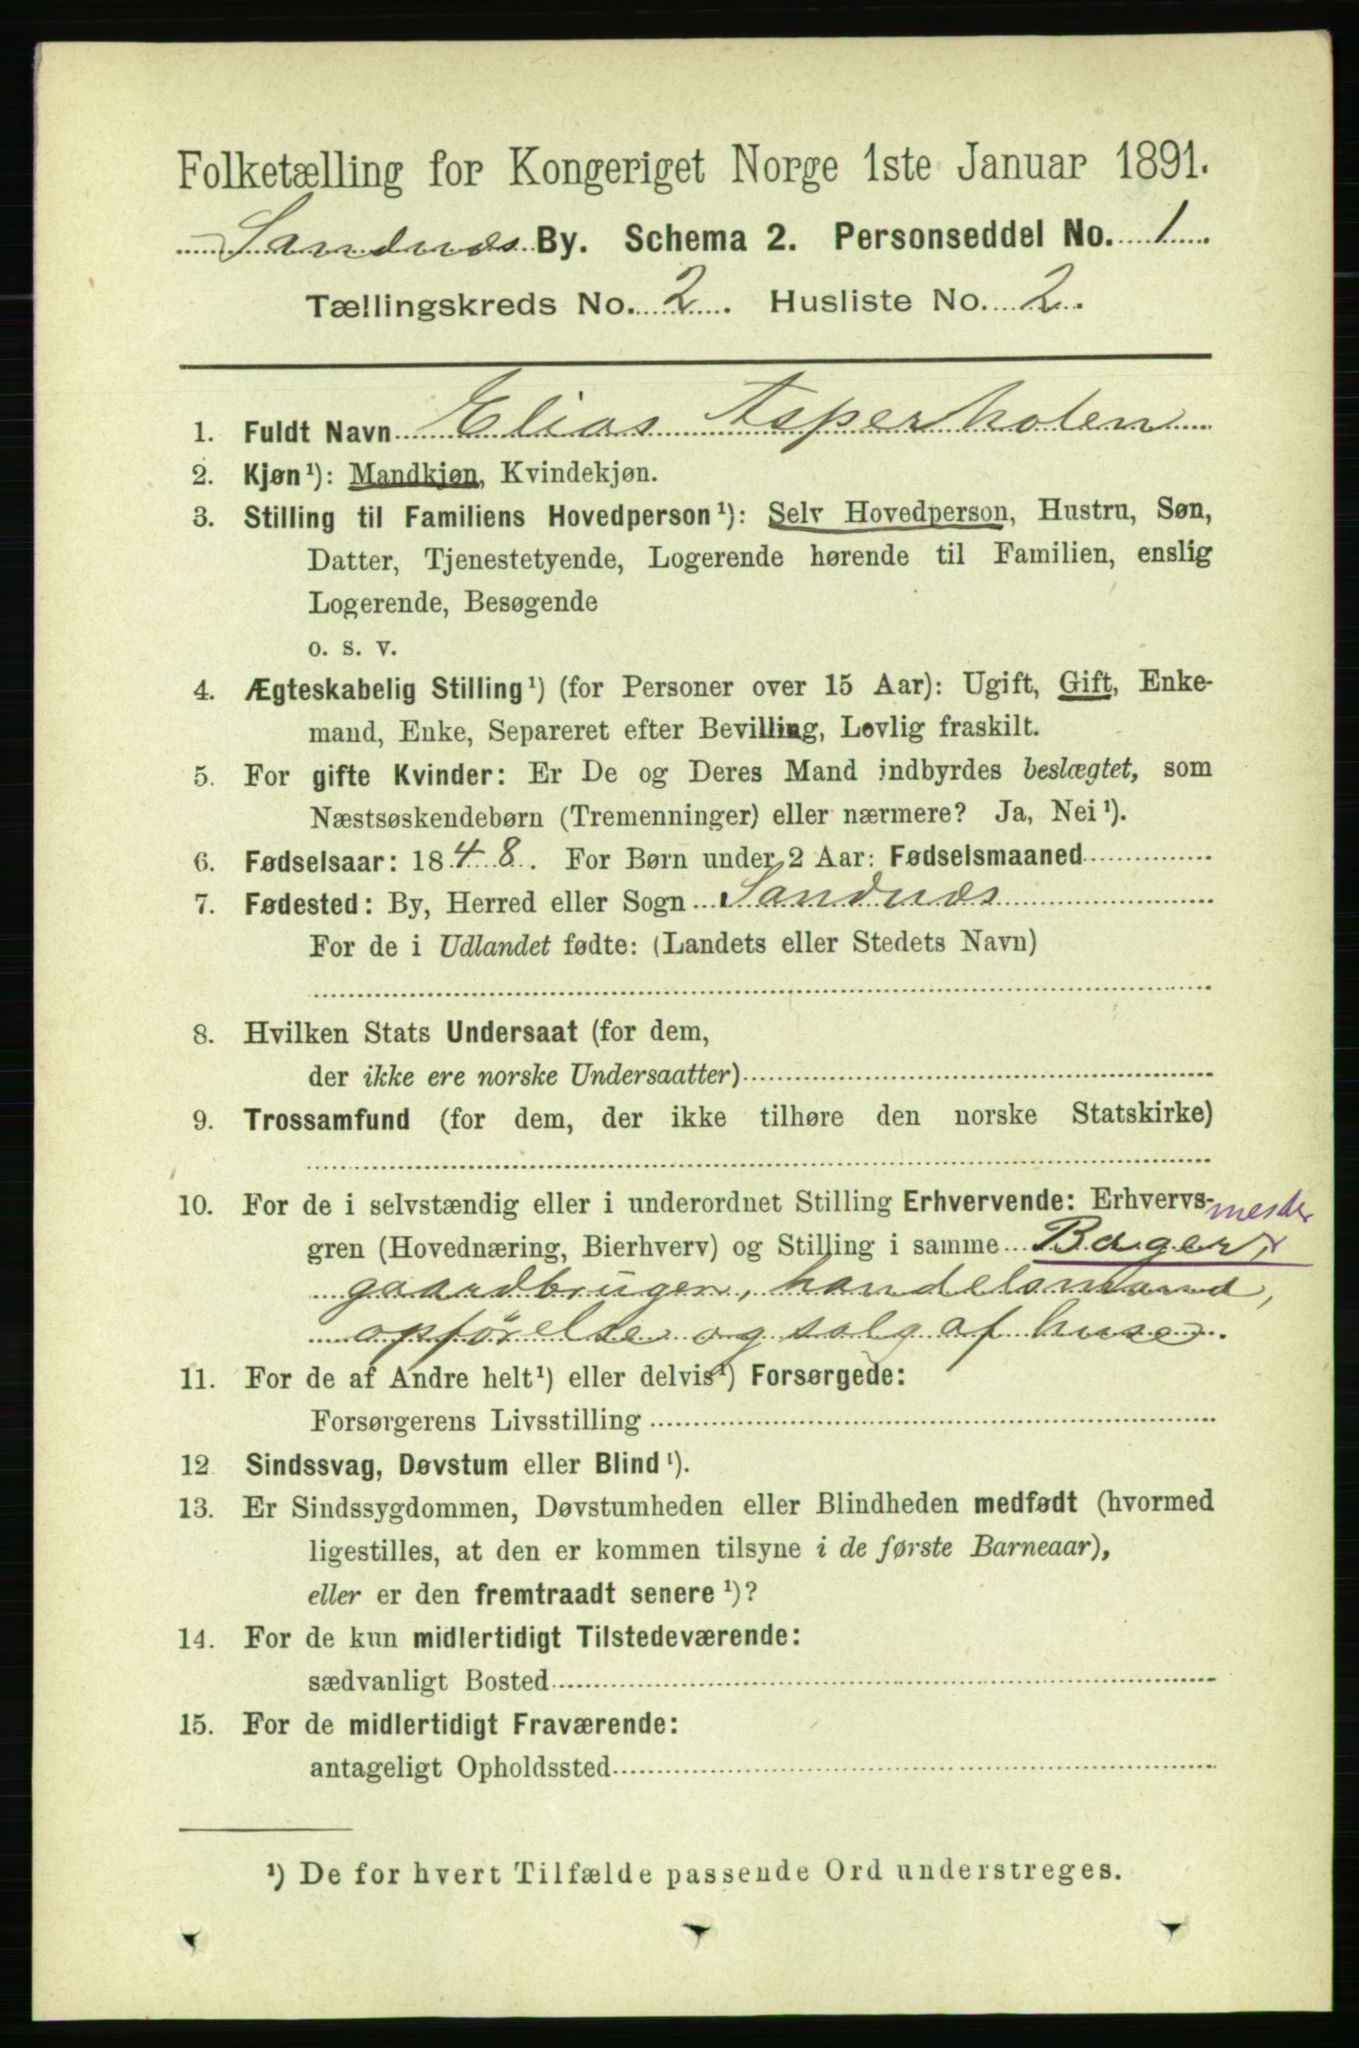 Folketælling for Kongeriget Norge 1ste Januar 1891.
Sandnæs By. Schema 2. Personseddel No. 1
Tællingskreds No. 2. Husliste No. 2.
1. Fuldt Navn Elias Asperholen
2. Kjøn¹): Mandkjøn, Kvindekjøn.
3. Stilling til Familiens Hovedperson¹): Selv Hovedperson, Hustru, Søn,
Datter, Tjenestetyende, Logerende hørende til Familien, enslig
Logerende, Besøgende
o. s. v.
4. Ægteskabelig Stilling¹) (for Personer over 15 Aar): Ugift, Gift, Enke-
mand, Enke, Separeret efter Bevilling, Lovlig fraskilt.
5. For gifte Kvinder: Er De og Deres Mand indbyrdes beslægtet, som
Næstsøskendebørn (Tremenninger) eller nærmere? Ja, Nei¹).
6. Fødselsaar: 1848. For Børn under 2 Aar: Fødselsmaaned
7. Fødested: By, Herred eller Sogn Sandnæs
For de i Udlandet fødte: (Landets eller Stedets Navn)
8. Hvilken Stats Undersaat (for dem,
der ikke ere norske Undersaatter)
9. Trossamfund (for dem, der ikke tilhøre den norske Statskirke)
10. For de i selvstændig eller i underordnet Stilling Erhvervende: Erhvervs-
mester
gren (Hovednæring, Bierhverv) og Stilling i samme Bager,
gaardbruger, handelsmand,
opförelse og salg af huse.
11. For de af Andre helt¹) eller delvis¹) Forsørgede:
Forsørgerens Livsstilling
12 Sindssvag, Døvstum eller Blind¹).
13. Er Sindssygdommen, Døvstumheden eller Blindheden medfødt (hvormed
ligestilles, at den er kommen tilsyne i de første Barneaar),
eller er den fremtraadt senere¹)?
14. For de kun midlertidigt Tilstedeværende:
sædvanligt Bosted
15. For de midlertidigt Fraværende:
antageligt Opholdssted
¹) De for hvert Tilfælde passende Ord understreges.